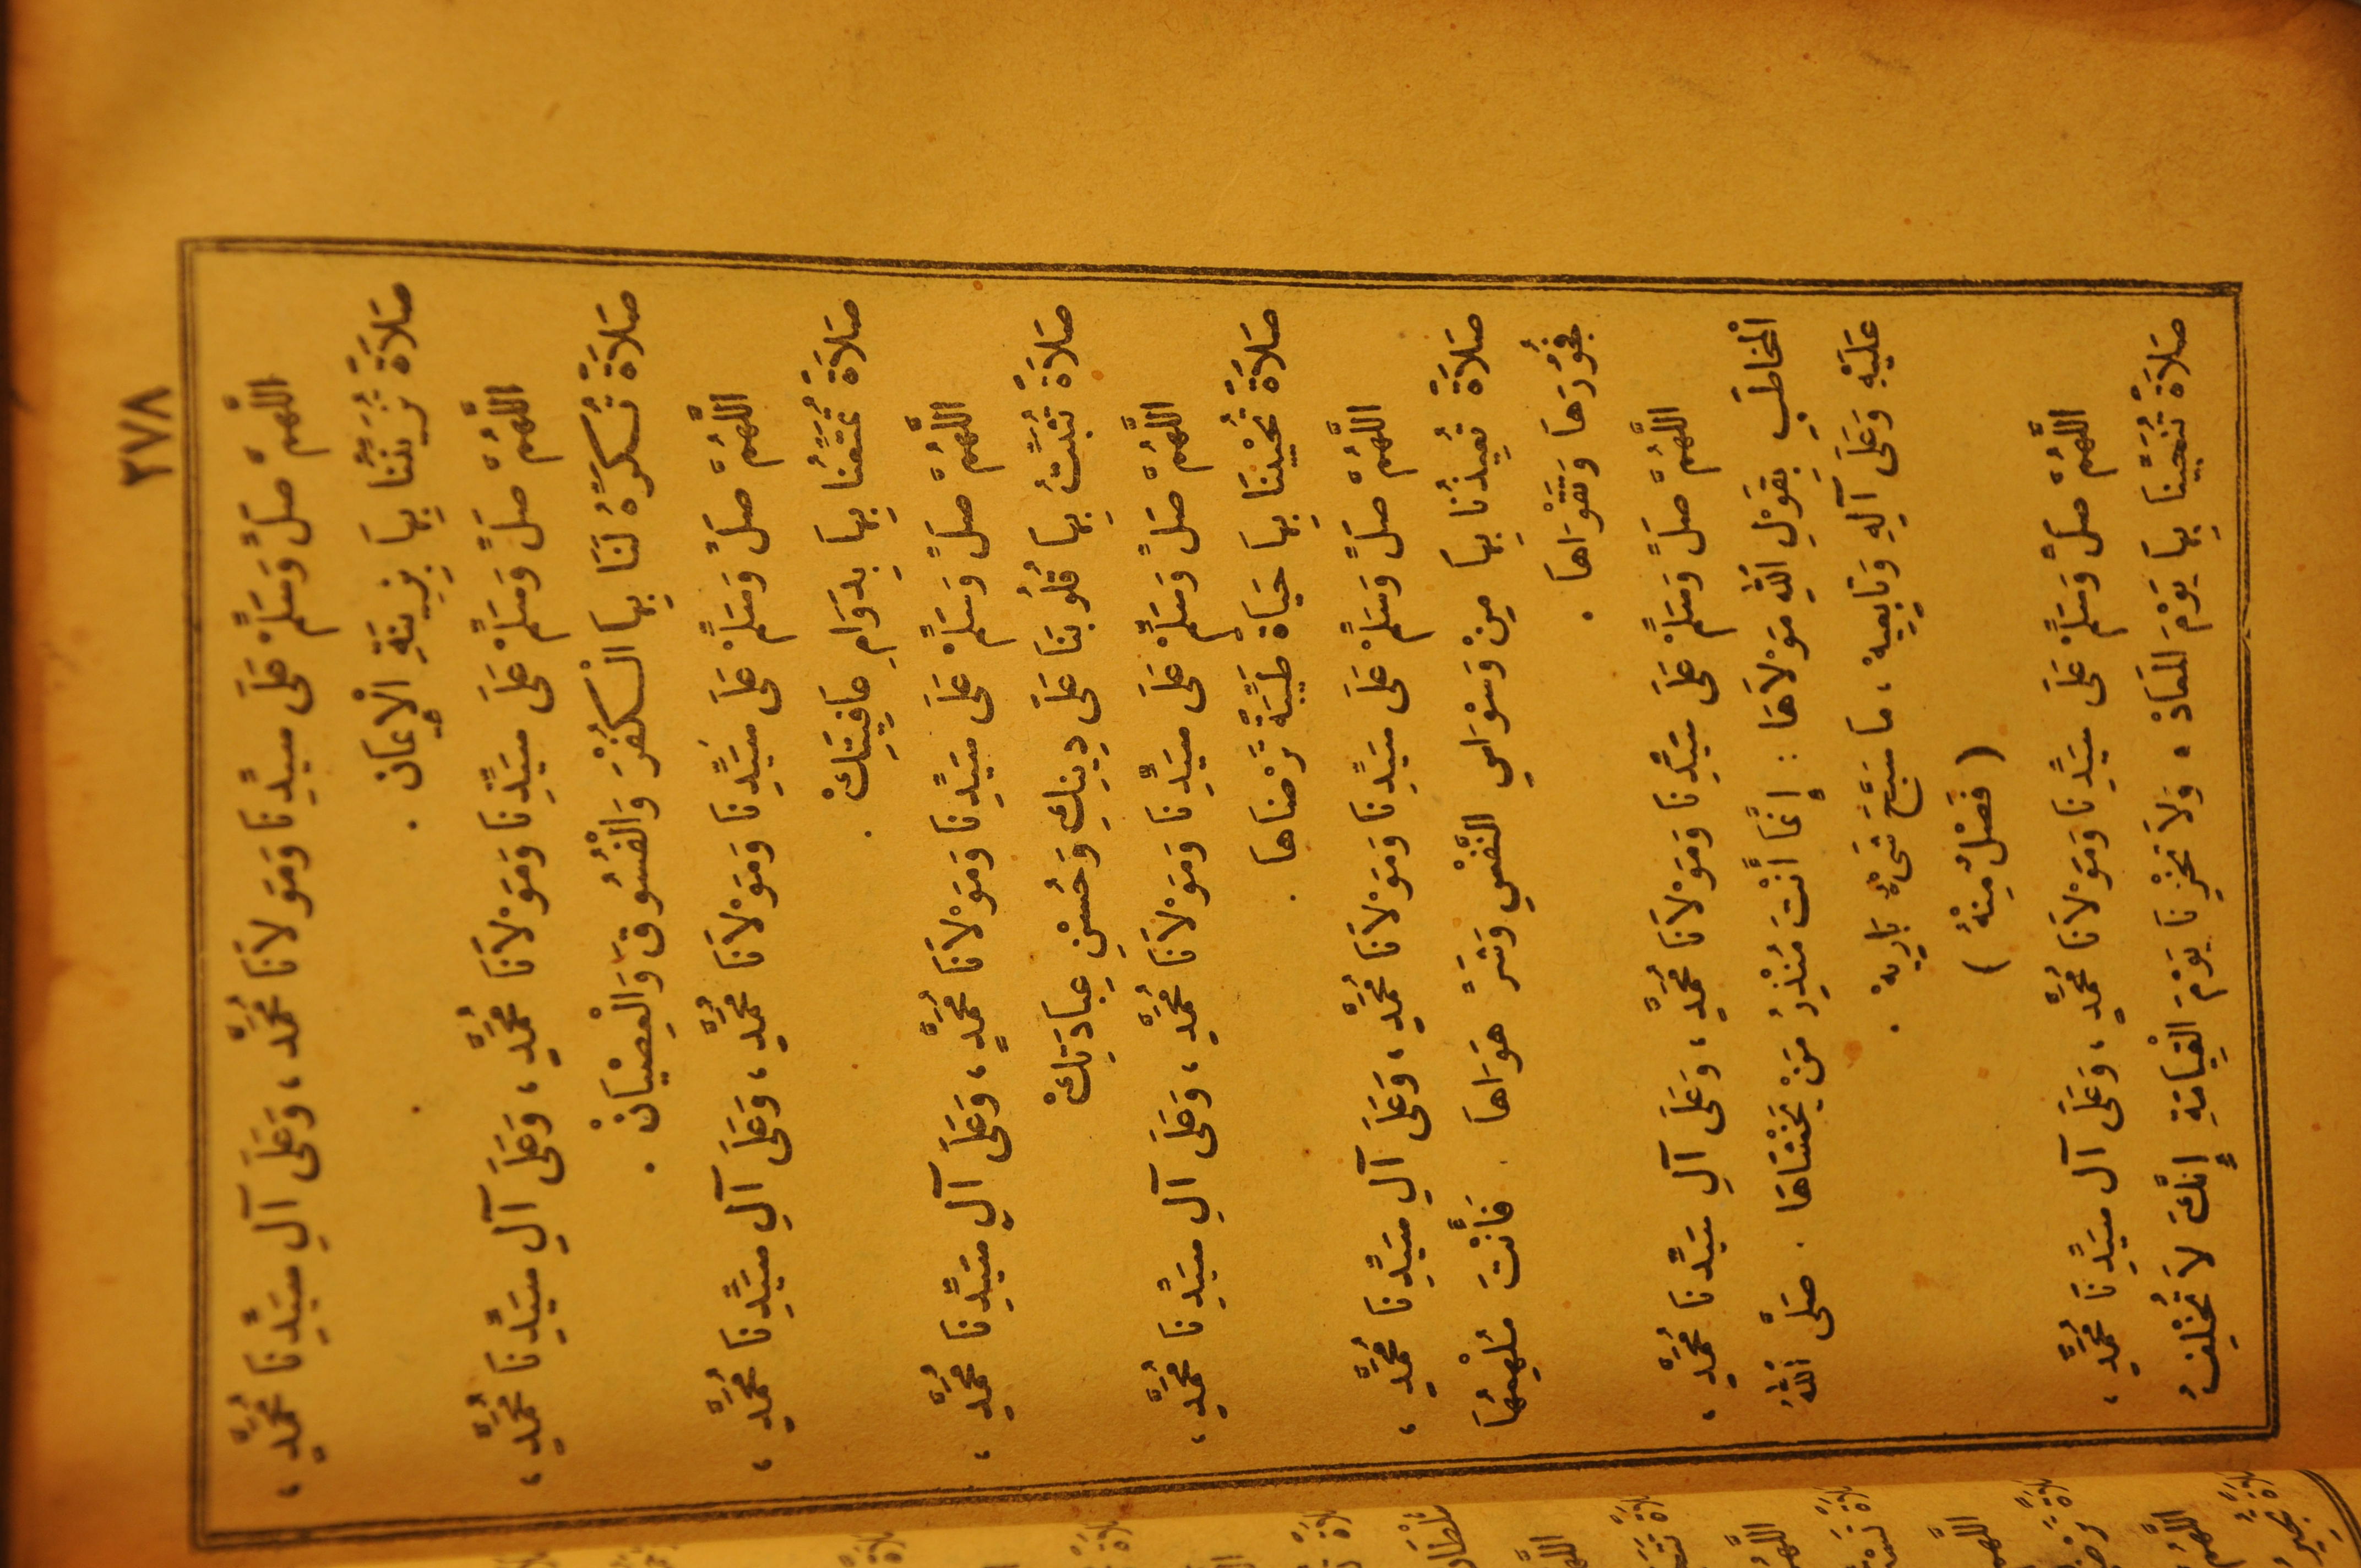 ٢٧٨
اللَّهُمَّ صَلِّ وَسَلِّمْ عَلَى سَيِّدِنَا وَمَوْلَانَا مُحَمَّدٍ، وَعَلَى آلِ سَيِّدِنَا مُحَمَّدٍ،
صَلَاةً تُزَيِّنُنَا بِهَا بِزِينَةِ الْإِيمَانْ .
اللَّهُمَّ صَلِّ وَسَلِّمْ عَلَى سَيِّدِنَا وَمَوْلَانَا مُحَمَّدٍ، وَعَلَى آلِ سَيِّدِنَا مُحَمَّدٍ،
صَلَاةً تُكَرِّهُ لَنَا بِهَا الْكُفْرَ وَالْفُسُوقَ وَالْعِصْيَانْ .
اللَّهُمَّ صَلِّ وَسَلِّمْ عَلَى سَيِّدِنَا وَمَوْلَانَا مُحَمَّدٍ، وَعَلَى آلِ سَيِّدِنَا مُحَمَّدٍ،
صَلَاةً تُمَتِّعُنَا بِهَا بِدَوَامِ عَافِيَتِكْ .
اللَّهُمَّ صَلِّ وَسَلِّمْ عَلَى سَيِّدِنَا وَمَوْلَانَا مُحَمَّدٍ، وَعَلَى آلِ سَيِّدِنَا مُحَمَّدٍ،
صَلَاةً تُثَبِّتُ بِهَا قُلُوبَنَا عَلَى دِينِكَ وَحُسْنِ عِبَادَتِكْ
اللَّهُمَّ صَلِّ وَسَلِّمْ عَلَى سَيِّدِنَا وَمَوْلَانَا مُحَمَّدٍ، وَعَلَى آلِ سَيِّدِنَا مُحَمَّدٍ،
صَلَاةً تُحْيِينَا بِهَا حَيَاةً طَيِّبَةً تَرْضَاهَا .
اللَّهُمَّ صَلِّ وَسَلِّمْ عَلَى سَيِّدِنَا وَمَوْلَانَا مُحَمَّدٍ، وَعَلَى آلِ سَيِّدِنَا مُحَمَّدٍ،
صَلَاةً تُعِيذُنَا بِهَا مِنْ وَسْوَاسِ النَّفْسِ وَشَرِّ هَوَاهَا . فَأَنْتَ مُلْهِمُهَا
فُجُورَهَا وَتَقْوَاهَا .
اللَّهُمَّ صَلِّ وَسَلِّمْ عَلَى سَيِّدِنَا وَمَوْلَانَا مُحَمَّدٍ، وَعَلَى آلِ سَيِّدِنَا مُحَمَّدٍ،
الْمُخَاطَبِ بِقَوْلِ اللهِ مَوْلَاهَا : إِنَّمَا أَنْتَ مُنْذِرُ مَنْ يَخْشَاهَا . صَلَّى اللهُ
عَلَيْهِ وَعَلَى آلِهِ وَتَابِعِيهْ، مَا سَبَّحَ شَيْءٌ بَارِيهْ .
( فَصْلٌ مِنْهُ )
اللَّهُمَّ صَلِّ وَسَلِّمْ عَلَى سَيِّدِنَا وَمَوْلَانَا مُحَمَّدٍ، وَعَلَى آلِ سَيِّدِنَا مُحَمَّدٍ،
صَلَاةً تُنْجِينَا بِهَا يَوْمَ الْمَعَادْ، وَلَا تُخْزِنَا يَوْمَ الْقِيَامَةِ إِنَّكَ لَا تُخْلِفُ